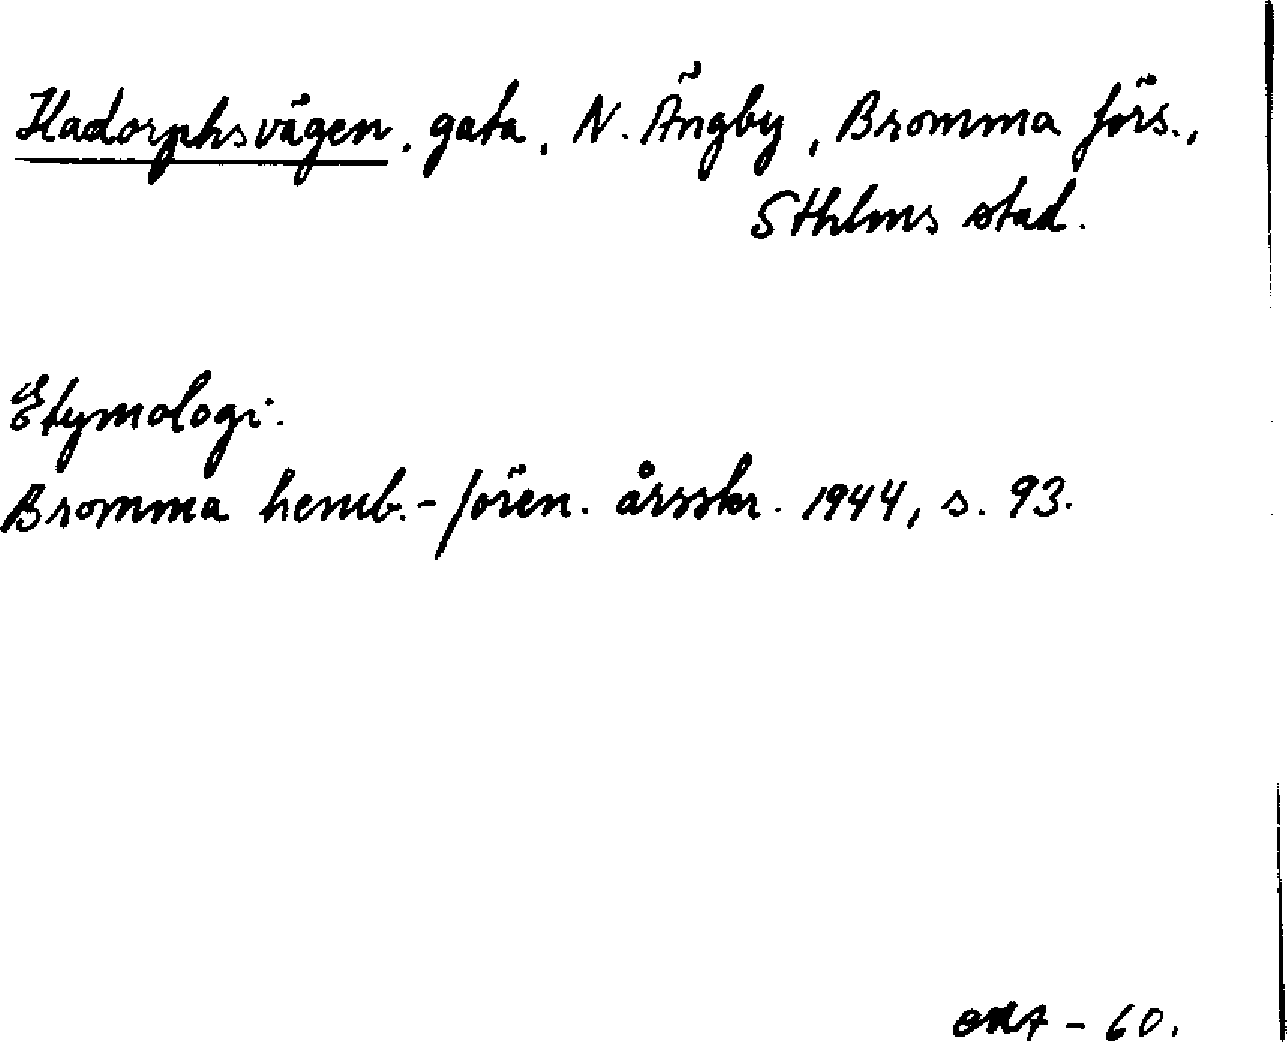 Hadorphsvägen, gata, N. Ängby, Bromma förs.,
Sthlms stad.
Etymologi.
Bromma hemb.-fören. årsskr. 1944, s. 93.
okt - 60.